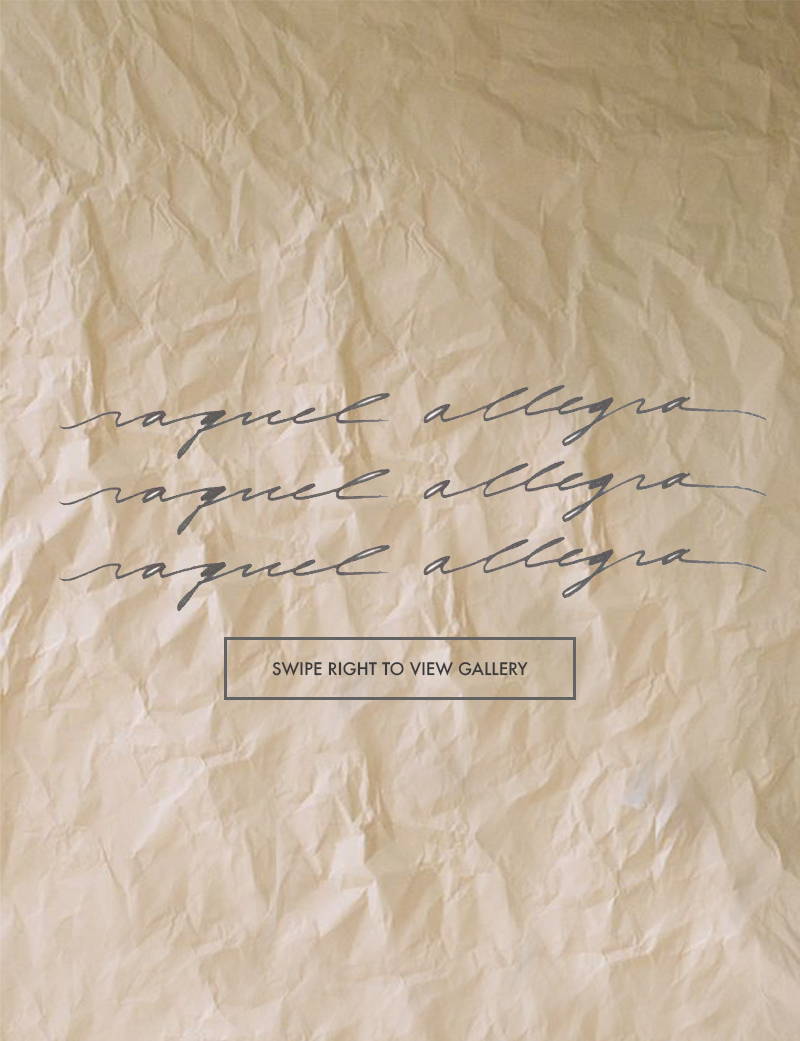 raquel allegra
raquel allegra
raquel allegra
SWIPE RIGHT TO VIEW GALLERY